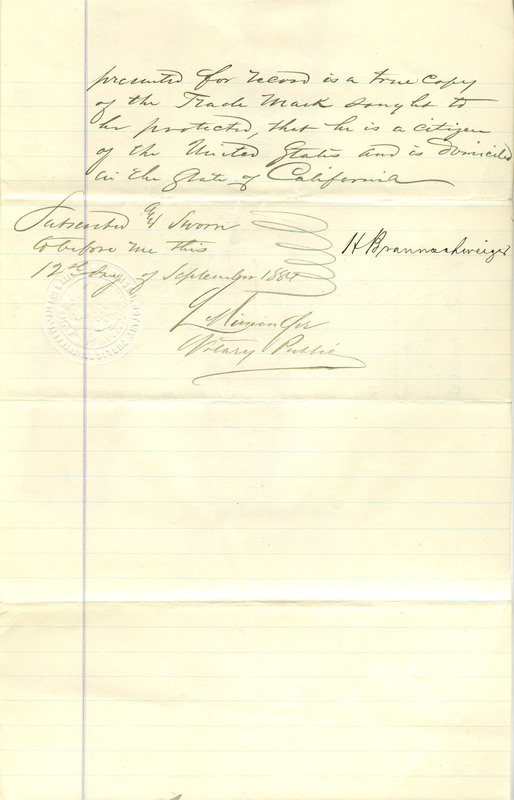 presented for record is a true copy
of the Trade Mark sought to
be protected, that he is a citizen
of the United States and is domiciled
in the State of California
Subscribed and Sworn
to before me this
12th day of September 1884
H Braunschweiger
Notary Public